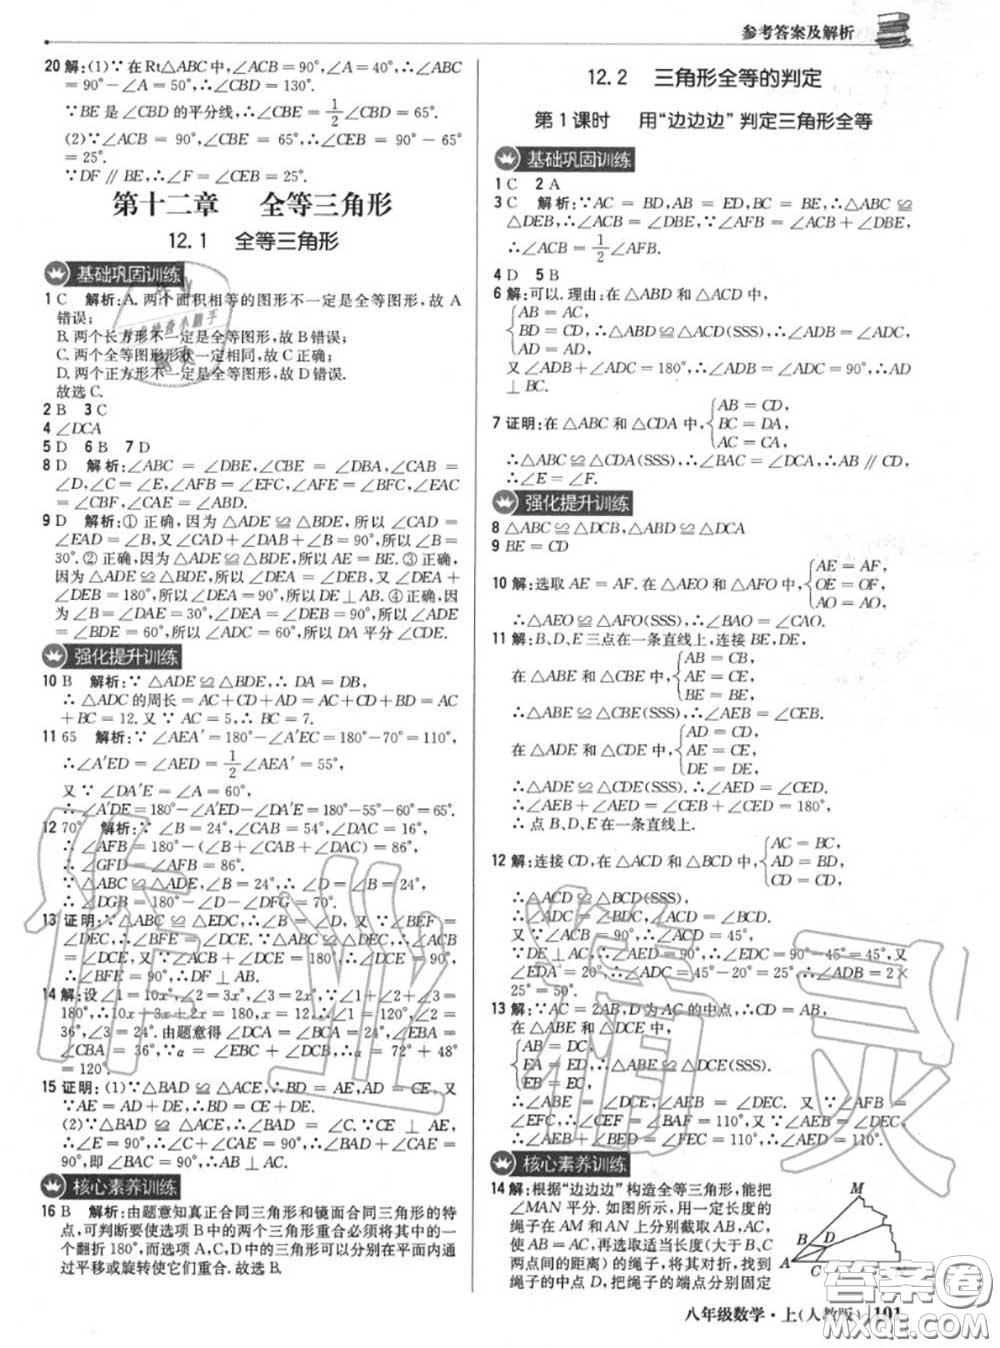 参考答案及解析
20 解:(1)∵在Rt△ABC中,∠ACB=90°,∠A=40°,∴∠ABC=
90°-∠A=50°,∴∠CBD=130°.
∵BE是∠CBD的平分线,∴∠CBE=1/2∠CBD=65°.
(2)∵∠ACB=90°,∠CBE=65°,∴∠CEB=90°-65°
=25°.
∵DF∥BE,∴∠F=∠CEB=25°.
第十二章 全等三角形
12.1 全等三角形
基础巩固训练
1 C 解析:A.两个面积相等的图形不一定是全等图形,故A
错误;
B.两个长方形不一定是全等图形,故B错误;
C.两个全等图形形状一定相同,故C正确;
D.两个正方形不一定是全等图形,故D错误.
故选C.
2 B 3 C
4 ∠DCA
5 D 6 B 7 D
8 D 解析:∠ABC=∠DBE,∠CBE=∠DBA,∠CAB=
∠D,∠C=∠E,∠AFB=∠EFC,∠AFE=∠BFC,∠EAC
=∠CBF,∠CAE=∠ABD.
9 D 解析:①正确,因为△ADE≌△BDE,所以∠CAD=
∠EAD=∠B,又∠CAD+∠DAB+∠B=90°,所以∠B=
30°.②正确,因为△ADE≌△BDE,所以AE=BE.③正确,
因为△ADE≌△BDE,所以∠DEA=∠DEB,又∠DEA+
∠DEB=180°,所以∠DEA=90°,所以DE⊥AB.④正确,因
为∠B=∠DAE=30°,∠DEA=∠DEB=90°,所以∠ADE
=∠BDE=60°,所以∠ADC=60°,所以DA平分∠CDE.
强化提升训练
10 B 解析:∵△ADE≌△BDE,∴DA=DB,
∴△ADC的周长=AC+CD+AD=AC+CD+BD=AC
+BC=12.又∵AC=5,∴BC=7.
11 65 解析:∵∠AEA′=180°-∠A′EC=180°-70°=110°,
∴∠A′ED=∠AED=1/2∠AEA′=55°,
又∵∠DA′E=∠A=60°,
∴∠A′DE=180°-∠A′ED-∠DA′E=180°-55°-60°=65°.
12 70° 解析:∵∠B=24°,∠CAB=54°,∠DAC=16°,
∴∠AFB=180°-(∠B+∠CAB+∠DAC)=86°,
∴∠GFD=∠AFB=86°.
∵△ABC≌△ADE,∠B=24°,∴∠D=∠B=24°,
∴∠DGB=180°-∠D-∠DFG=70°.
13 证明:∵△ABC≌△EDC,∴∠B=∠D.又∵∠BEF=
∠DEC,∴∠BFE=∠DCE.∵△ABC≌△DEC,∴∠ACB
=∠DCE,又∵∠ACB+∠DCE=180°,∴∠DCE=90°,
∴∠BFE=90°,∴DF⊥AB.
14 解:设∠1=10x°,∠2=3x°,∠3=2x°,∵∠1+∠2+∠3=
180°,∴10x+3x+2x=180,x=12.∴∠1=120°,∠2=
36°,∠3=24°.由题意得∠DCA=∠BCA=24°,∠EBA=
∠CBA=36°.∵∠α=∠EBC+∠DCB,∴∠α=72°+48°
=120°.
15 证明:(1)∵△BAD≌△ACE,∴BD=AE,AD=CE,又
∵AE=AD+DE,∴BD=CE+DE.
(2)∵△BAD≌△ACE,∴∠BAD=∠C.∵CE⊥AE,
∴∠E=90°,∴∠C+∠CAE=90°,∴∠BAD+∠CAE=
90°,即∠BAC=90°,∴AB⊥AC.
核心素养训练
16 B 解析:由题意知真正合同三角形和镜面合同三角形的特
点,可判断要使选项B中的两个三角形重合必须将其中的一
个翻折180°,而选项A,C,D中的三角形可以分别在平面内通
过平移或旋转使它们重合.故选B.
12.2 三角形全等的判定
第1课时 用“边边边”判定三角形全等
基础巩固训练
1 C 2 A
3 C 解析:∵AC=BD,AB=ED,BC=BE,∴△ABC≌
△DEB,∴∠ACB=∠DBE,∵∠AFB=∠ACB+∠DBE,
∴∠ACB=1/2∠AFB.
4 D 5 B
6 解:可以.理由:在△ABD和△ACD中,
AB=AC,
BD=CD,∴△ABD≌△ACD(SSS),∴∠ADB=∠ADC.
AD=AD,
又∠ADB+∠ADC=180°,∴∠ADB=∠ADC=90°,∴AD
⊥BC.
AB=CD,
7 证明:在△ABC和△CDA中,BC=DA,
AC=CA,
∴△ABC≌△CDA(SSS),∴∠BAC=∠DCA,∴AB∥CD,
∴∠E=∠F.
强化提升训练
8 △ABC≌△DCB,△ABD≌△DCA
9 BE=CD
AE=AF,
10 解:选取AE=AF.在△AEO和△AFO中,OE=OF,
AO=AO,
∴△AEO≌△AFO(SSS),∴∠BAO=∠CAO.
11 解:B、D、E三点在一条直线上,连接BE,DE,
AB=CB,
在△ABE和△CBE中,AE=CE,
BE=BE,
∴△ABE≌△CBE(SSS),∴∠AEB=∠CEB.
AD=CD,
在△ADE和△CDE中,AE=CE,
DE=DE,
∴△ADE≌△CDE(SSS),∴∠AED=∠CED.
∴∠AEB+∠AED=∠CEB+∠CED=180°,
∴点B、D、E在一条直线上.
AC=BC,
12 解:连接CD,在△ACD和△BCD中,AD=BD,
CD=CD,
∴△ACD≌△BCD(SSS),
∴∠ADC=∠BDC,∠ACD=∠BCD.
又∵∠ACB=90°,∴∠ACD=45°,
∵DE⊥AC,∴∠DEC=90°,∴∠CDE=90°-45°=45°,又
∠EDA=20°,∴∠ADC=45°-20°=25°,∴∠ADB=2×
25°=50°.
13 解:∵AC=2AB,D为AC的中点,∴CD=AB,
在△ABE和△DCE中
AB=DC,
EA=ED,∴△ABE≌△DCE(SSS),
EB=EC,
∴∠ABE=∠DCE,∠AEB=∠DEC.又∵∠AFB=
∠EFC,∴∠BEC=∠BAC=110°,
∴∠AED=∠AEB+∠BED=∠DEC+∠BED=
∠BEC=110°,∴∠AED=110°.
核心素养训练
14 解:根据“边边边”构造全等三角形,能把
∠MAN平分.如图所示,用一定长度的
绳子在AM和AN上分别截取AB,AC,
使AB=AC,再选取适当长度(大于B、C
两点间的距离)的绳子,将其对折,找到
绳子的中点D,把绳子的端点分别固定
M
B
D
A
C
八年级数学·上(人教版) 101
作业精灵
答案卷